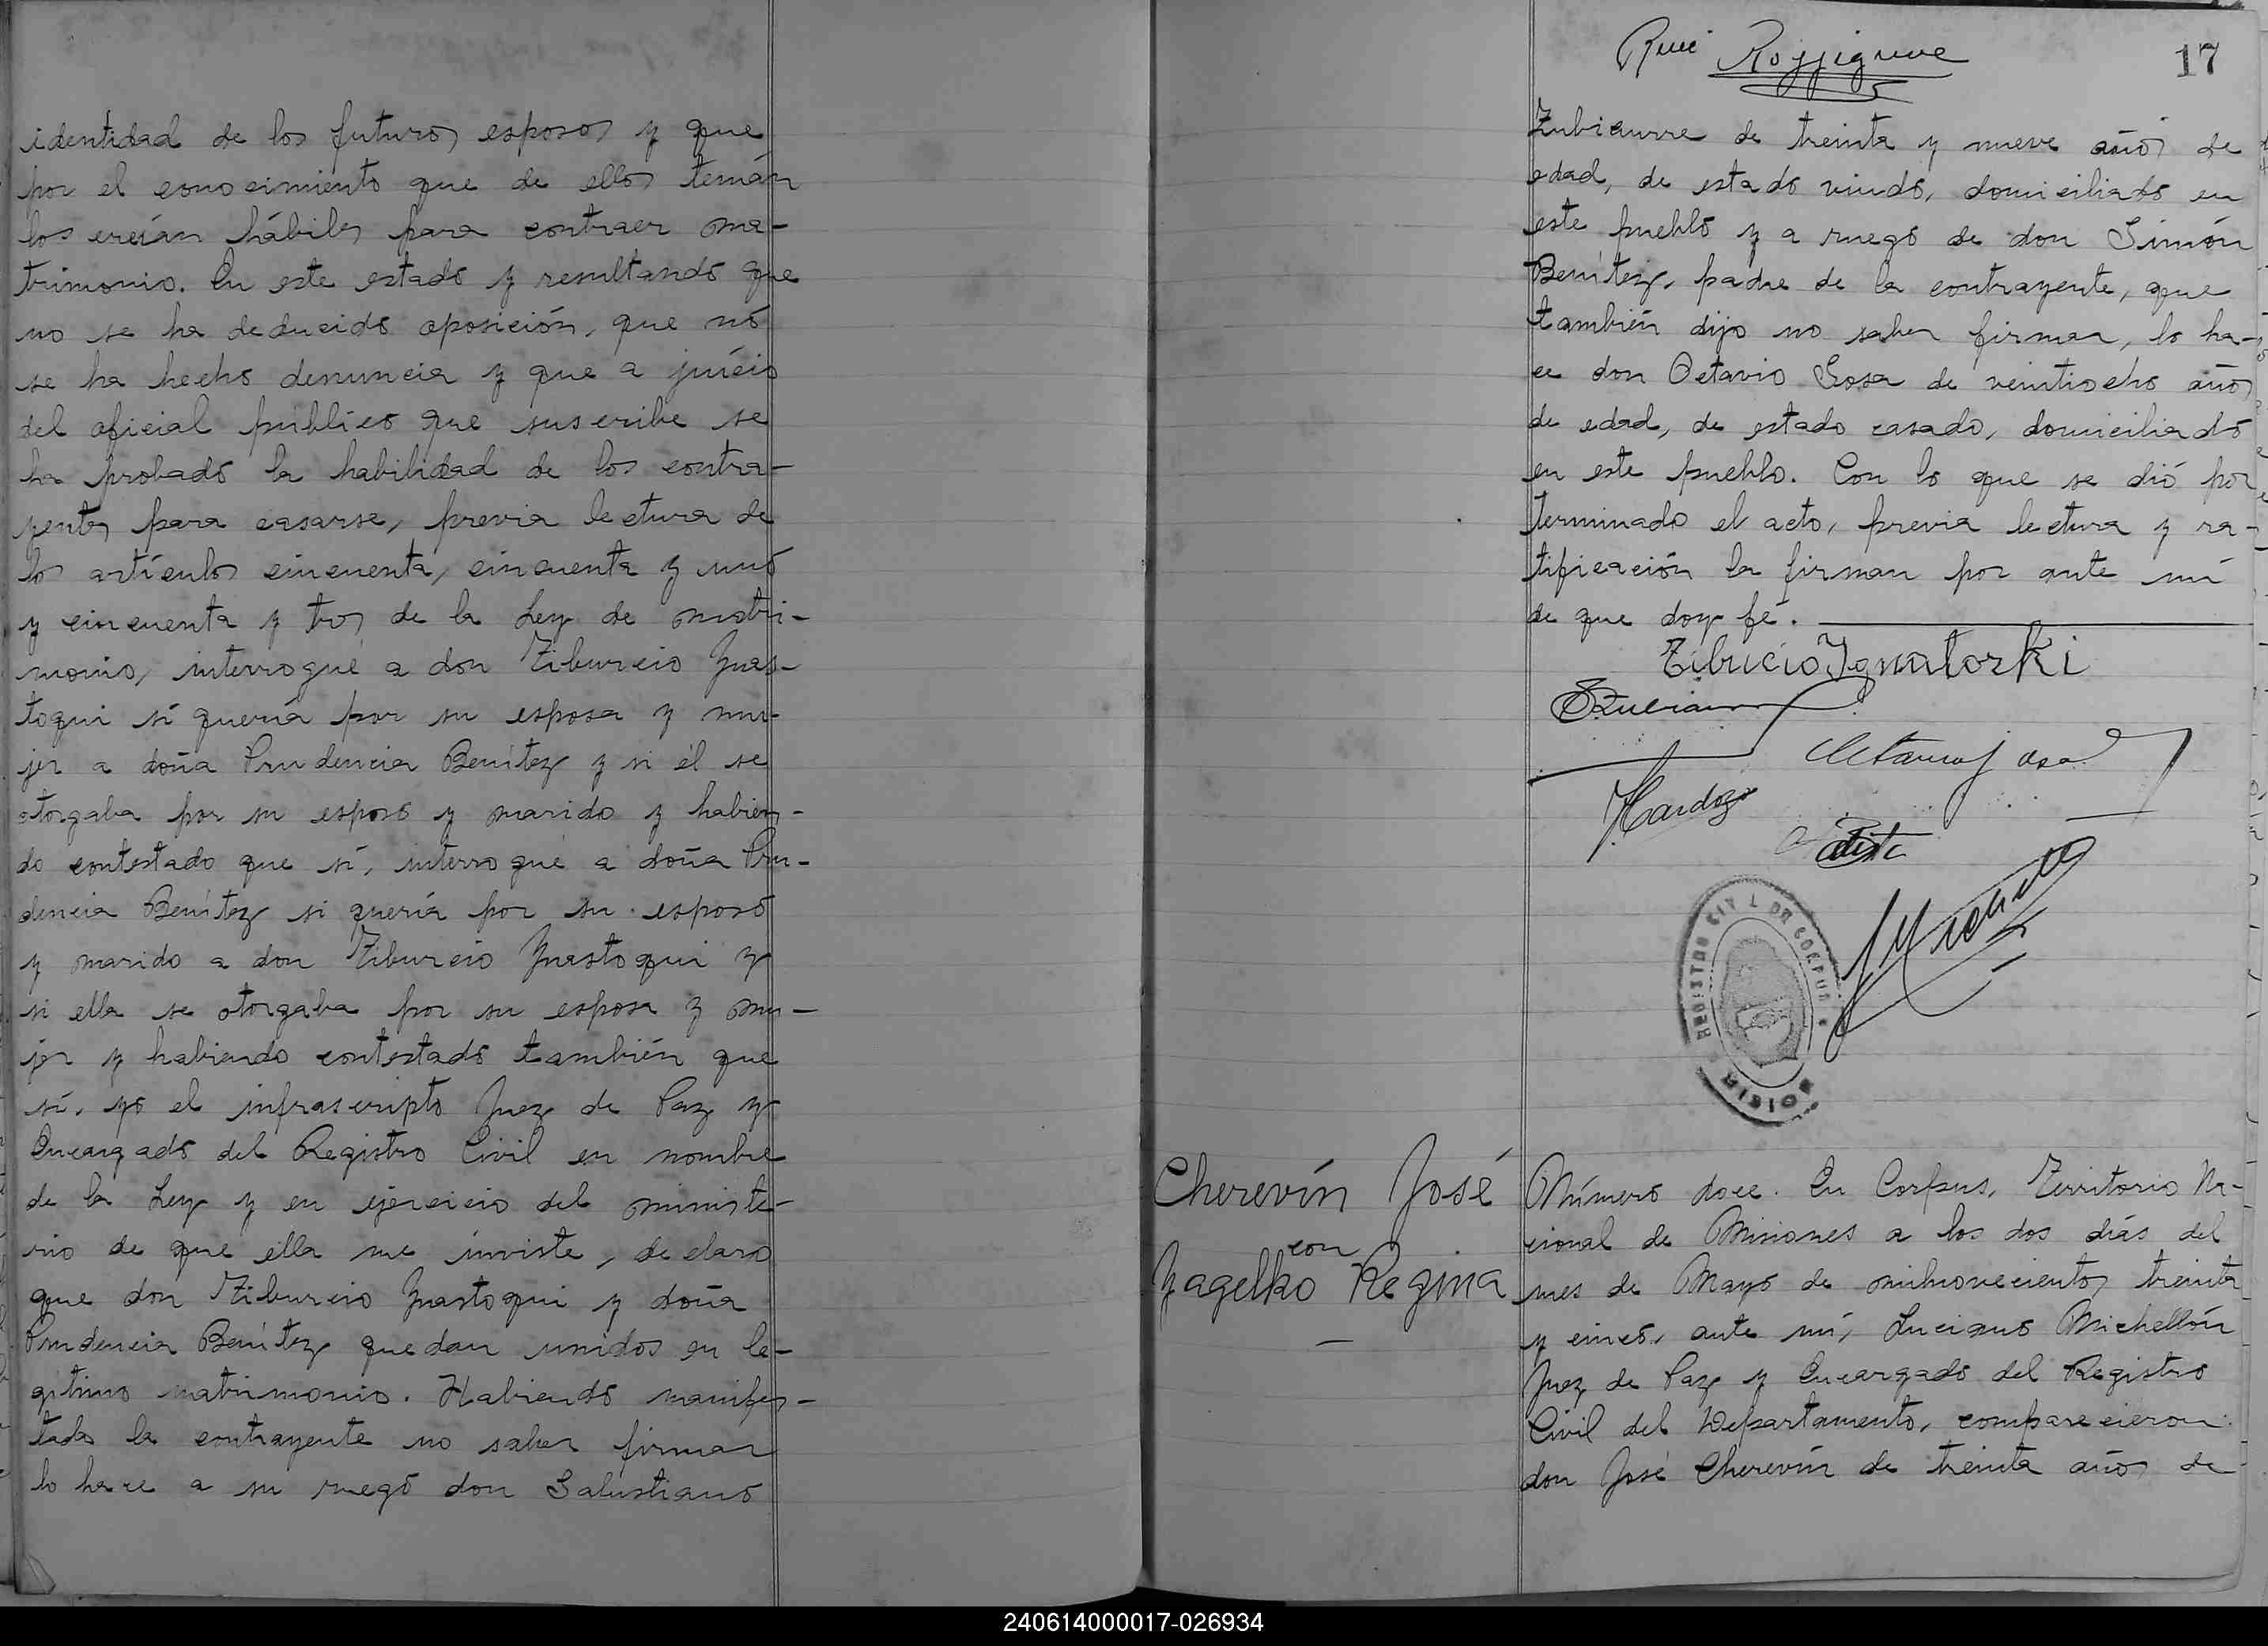 identidad de los futuros esposos y que
por el conocimiento que de ellos tenían
los creían hábiles para contraer ma-
trimonio. En este estado y resultando que
no se ha deducido oposición, que no
se ha hecho denuncia y que a juicio
del oficial público que suscribe se
ha probado la habilidad de los contra-
yentes para casarse, previa lectura de
los artículos cincuenta, cincuenta y uno
y cincuenta y tres de la Ley de matri-
monio, interrogué a don Tiburcio Ynas-
toqui si quería por su esposa y mu-
jer a doña Prudencia Benítez y si él se
otorgaba por su esposo y marido y habien-
do contestado que sí, interrogué a doña Pru-
dencia Benítez si quería por su esposo
y marido a don Tiburcio Ynastoqui y
si ella se otorgaba por su esposa y mu-
jer y habiendo contestado también que
sí, yo el infrascripto Juez de Paz y
Encargado del Registro Civil en nombre
de la Ley y en ejercicio del ministe-
rio de que ella me inviste, declaro
que don Tiburcio Ynastoqui y doña
Prudencia Benítez quedan unidos en le-
gítimo matrimonio. Habiendo manifes-
tado la contrayente no saber firmar
lo hace a su ruego don Salustiano
17
Zubiaurre de treinta y nueve años de
edad, de estado viudo, domiciliado en
este pueblo y a ruego de don Simón
Benítez, padre de la contrayente, que
también dijo no saber firmar, lo ha-
ce don Octavio Sosa de veintiocho años
de edad, de estado casado, domiciliado
en este pueblo. Con lo que se dió por
terminado el acto, previa lectura y ra-
tificación la firman por ante mí
de que doy fé.
Tibucio Ygnatorki
Octavio Sosa
REGISTRO CIVIL DE CORPUS
MISIONES
Cherevín José
con
Yagelko Regina
Número doce. En Corpus, Territorio Na-
cional de Misiones a los dos días del
mes de Mayo de milnovecientos treinta
y cinco, ante mí, Luciano Michellón
Juez de Paz y Encargado del Registro
Civil del Departamento, comparecieron:
don José Cherevín de treinta años de
240614000017-026934